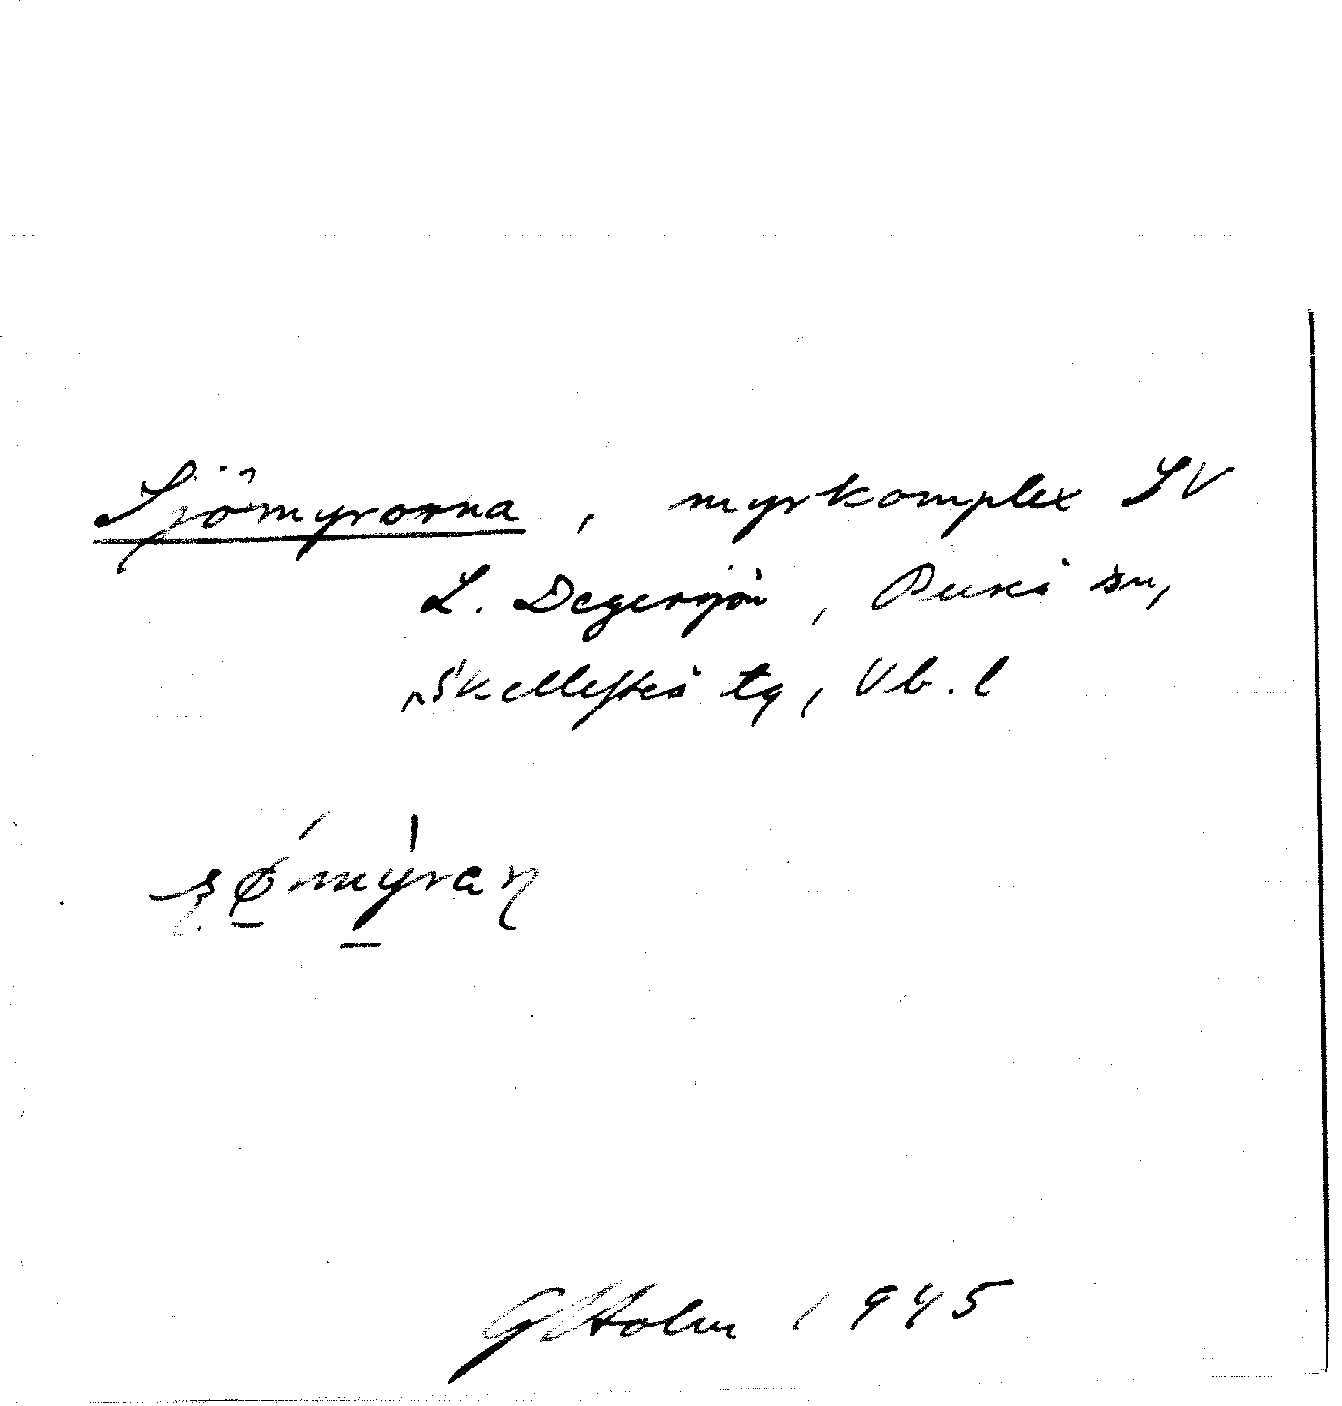 Sjömyrorna, myrkomplex SV
L. Degersjön, Piteå sn,
Skellefteå tg, Vb. l
G Holm 1945